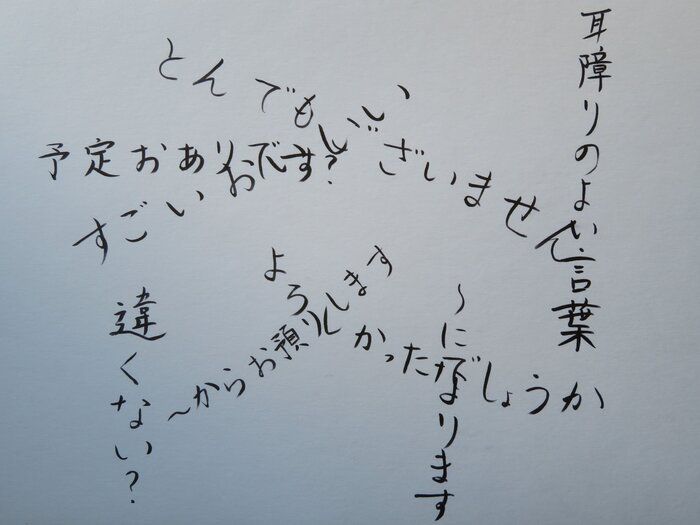 耳障りのよい言葉
とんでもございません
予定おありです?
すごいおいしい
よろしかったでしょうか
〜になります
〜からお預りします
違くない?